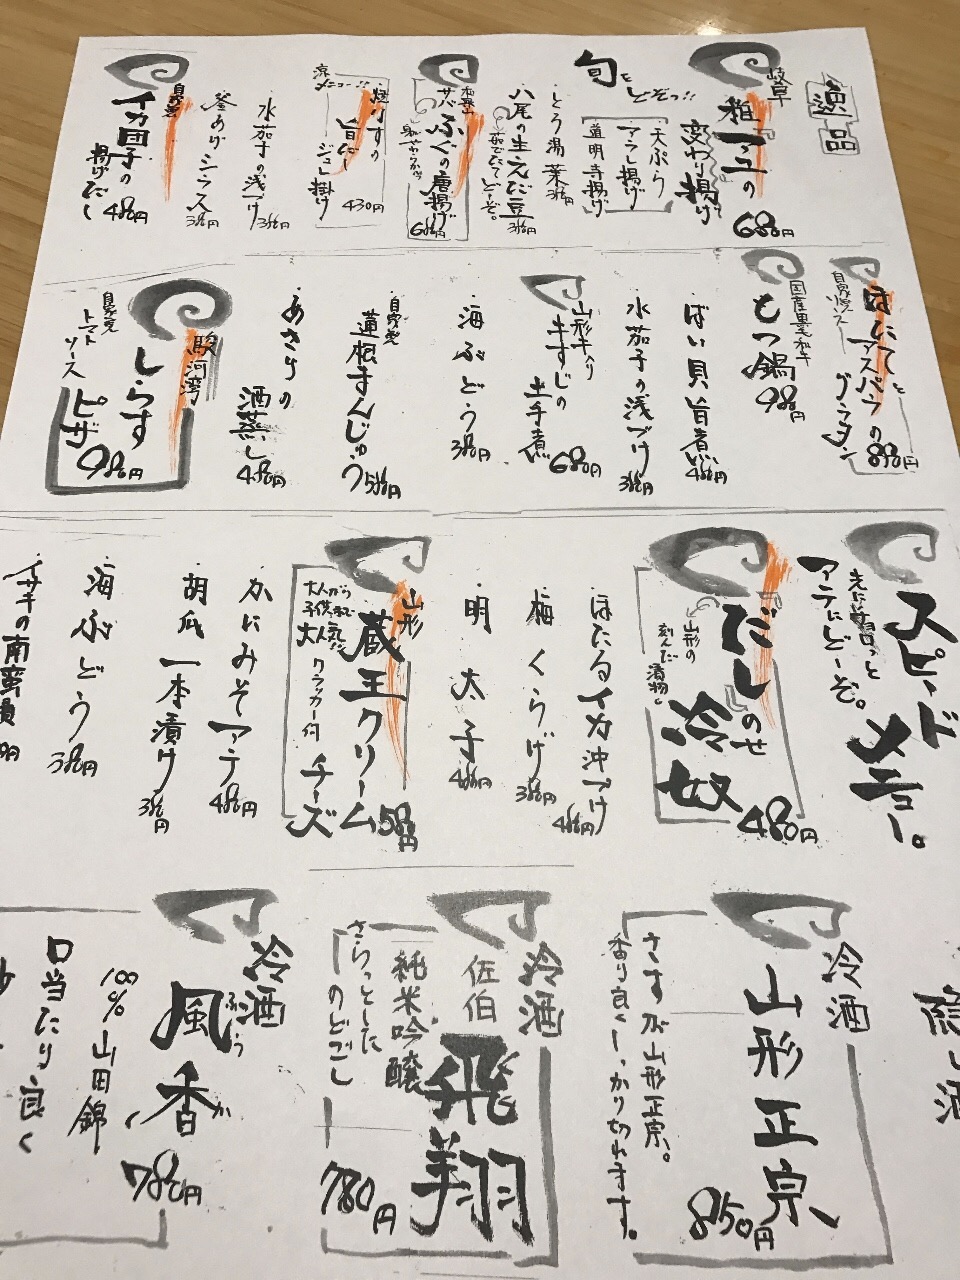 逸品
岐阜
椎茸の
変わり揚げ
680円
旬をどぞっ!!
天ぷら
アラレ揚げ
道明寺揚げ
とろ湯葉
380円
八尾の生えだ豆
380円
茹でたてどーぞ。
和歌山
サバふぐの唐揚げ
680円
涼メニュー!!
焼なすの
旨だし
ジュレ掛け
430円
水茄子の浅づけ
380円
釜あげシラス
380円
自家製
イカ団子の
揚げだし
480円
ほたてと
アスパラの
グラタン
880円
自家製ソース
国産黒毛和牛
もつ鍋
980円
ばい貝旨煮
480円
水茄子の浅づけ
380円
山形牛入り
牛すじの
土手煮
680円
海ぶどう
380円
自家製
蓮根まんじゅう
580円
あさりの
酒蒸し
480円
駿河湾
しらす
ピザ
980円
自家製
トマト
ソース
スピードメニュー。
アテにどーぞ。
だしのせ
冷奴
480円
山形の
刻んだ漬物。
ほたるイカ沖づけ
480円
梅くらげ
380円
明太子
480円
山形
蔵王クリーム
チーズ
580円
大人から
子供まで
大人気!!
クラッカー付
かにみそアテ
480円
胡瓜一本漬け
380円
海ぶどう
380円
イサキの南蛮漬
隠し酒
冷酒
山形正宗
850円
さすが山形正宗。
香り良くしっかり切れます。
冷酒
佐伯
飛翔
純米吟醸
さらっとした
のどごし
780円
冷酒
風香
ふうか
780円
100%山田錦
口当たり良く